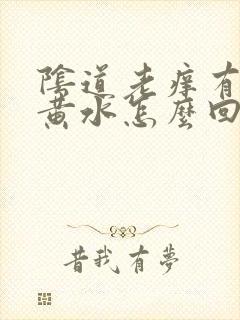 陰道老痒有
黄水怎麼回
昔我有夢